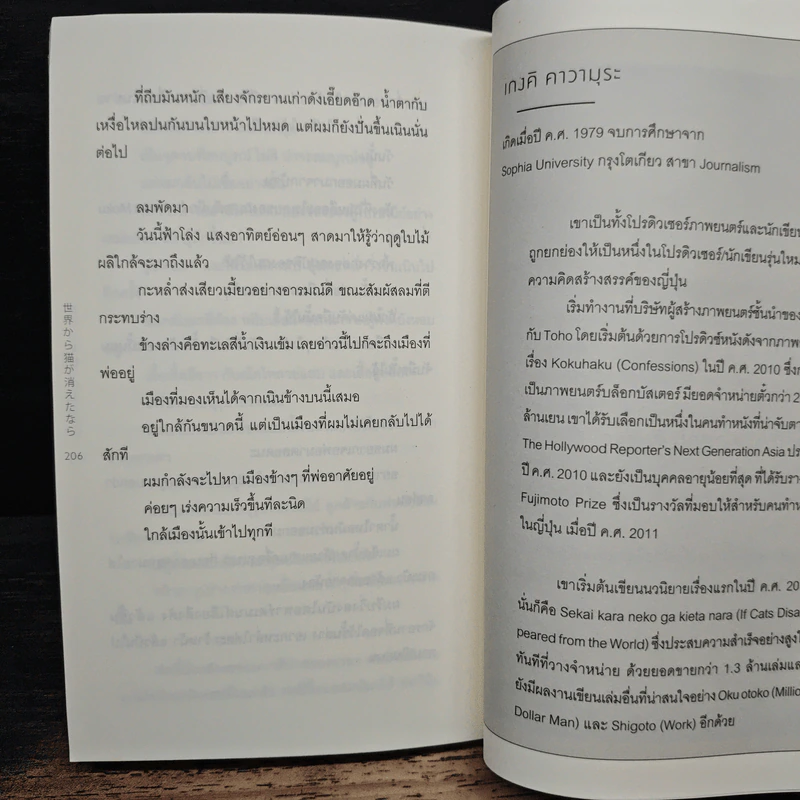 ที่ถีบมันหนัก เสียงจักรยานเก่าดังเอี๊ยดอ๊าด น้ำตากับ
เหงื่อไหลปนกันบนใบหน้าไปหมด แต่ผมก็ยังปั่นขึ้นเนินนั่น
ต่อไป
ลมพัดมา
วันนี้ฟ้าโล่ง แสงอาทิตย์อ่อนๆ สาดมาให้รู้ว่าฤดูใบไม้
ผลิใกล้จะมาถึงแล้ว
กะหล่ำส่งเสียวเมี้ยวอย่างอารมณ์ดี ขณะสัมผัสลมที่ตี
กระทบร่าง
ข้างล่างคือทะเลสีน้ำเงินเข้ม เลยอ่าวนี้ไปก็จะถึงเมืองที่
พ่ออยู่
เมืองที่มองเห็นได้จากเนินข้างบนนี้เสมอ
อยู่ใกล้กันขนาดนี้ แต่เป็นเมืองที่ผมไม่เคยกลับไปได้
สักที
ผมกำลังจะไปหา เมืองข้างๆ ที่พ่ออาศัยอยู่
ค่อยๆ เร่งความเร็วขึ้นทีละนิด
ใกล้เมืองนั้นเข้าไปทุกที
世界から猫が消えたなら
206
เกงคิ คาวามุระ
เกิดเมื่อปี ค.ศ. 1979 จบการศึกษาจาก
Sophia University กรุงโตเกียว สาขา Journalism
เขาเป็นทั้งโปรดิวเซอร์ภาพยนตร์และนักเขียน
ถูกยกย่องให้เป็นหนึ่งในโปรดิวเซอร์/นักเขียนรุ่นใหม่
ความคิดสร้างสรรค์ของญี่ปุ่น
เริ่มทำงานที่บริษัทผู้สร้างภาพยนตร์ชั้นนำของ
กับ Toho โดยเริ่มต้นด้วยการโปรดิวซ์หนังดังจากภาพ
เรื่อง Kokuhaku (Confessions) ในปี ค.ศ. 2010 ซึ่ง
เป็นภาพยนตร์บล็อกบัสเตอร์ มียอดจำหน่ายตั๋วกว่า
ล้านเยน เขาได้รับเลือกเป็นหนึ่งในคนทำหนังที่น่าจับตา
The Hollywood Reporter's Next Generation Asia
ปี ค.ศ. 2010 และยังเป็นบุคคลอายุน้อยที่สุด ที่ได้รับ
Fujimoto Prize ซึ่งเป็นรางวัลที่มอบให้สำหรับคนทำ
ในญี่ปุ่น เมื่อปี ค.ศ. 2011
เขาเริ่มต้นเขียนนวนิยายเรื่องแรกในปี ค.ศ. 20
นั่นก็คือ Sekai kara neko ga kieta nara (If Cats Disa
peared from the World) ซึ่งประสบความสำเร็จอย่างสูง
ทันทีที่วางจำหน่าย ด้วยยอดขายกว่า 1.3 ล้านเล่ม
ยังมีผลงานเขียนเล่มอื่นที่น่าสนใจอย่าง Oku otoko (Millio
Dollar Man) และ Shigoto (Work) อีกด้วย